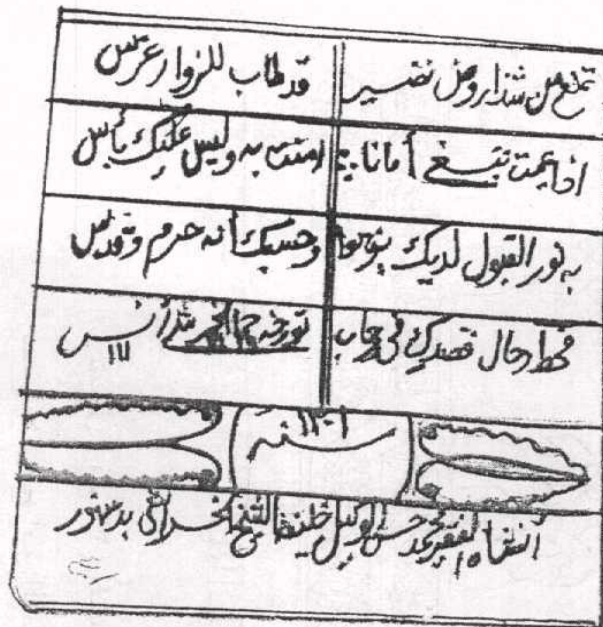 تمتع من شذا روض نفيس قد طاب للزوار غرس
اذا يممت تبتغي أمانا به امنت به وليس عليك بأس
به نور القبول لديك يزهو وحسبك أنه حرم وقدس
فحط رحال قصدك في رحاب تؤرخه حما الخير أنس
سنه ١٢٠١
أنشاه الفقير محمد حسن الوكيل خليفة الشيخ الخراشي بدمنهور